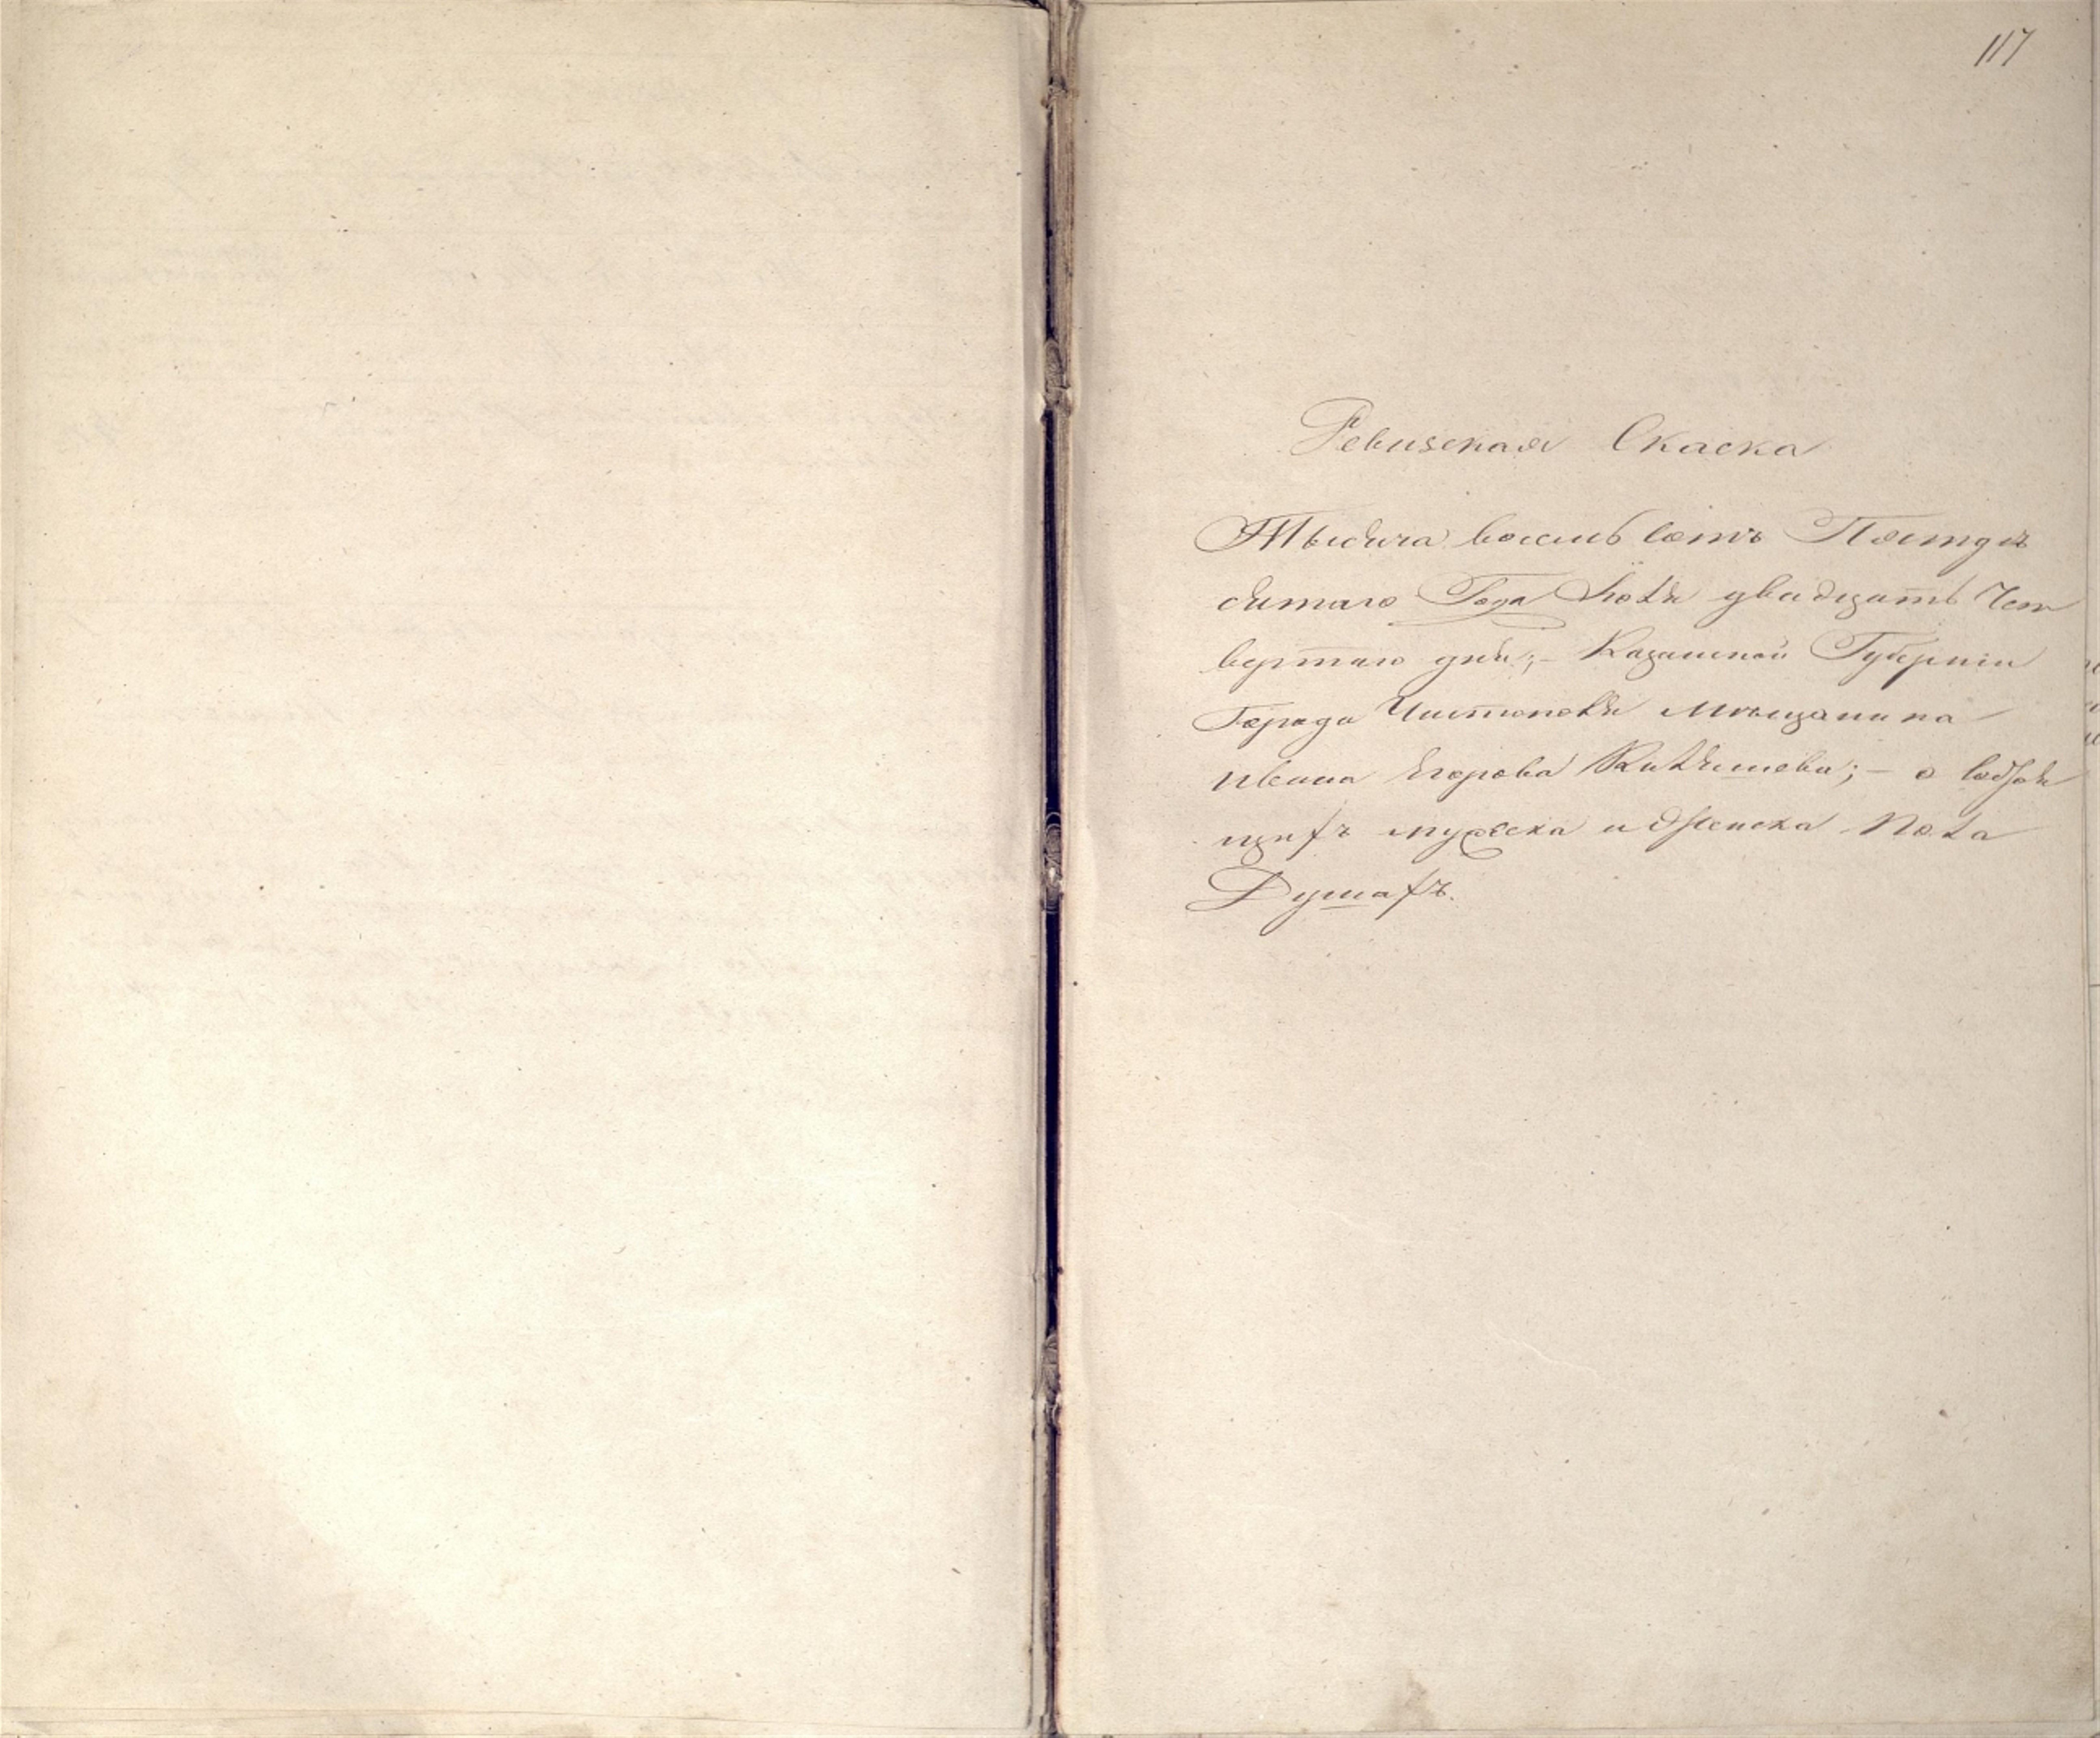 117
Ревизская Скаска
Тысяча восемь сотъ Пятдъ
сятаго Года Июля двадцать Чет
вертаго дня;- Казанской Губерніи
Города Чистополя мѣщанина
Ивана Егорова;- о состоя
щихъ мужеска и женска пола
Душахъ.